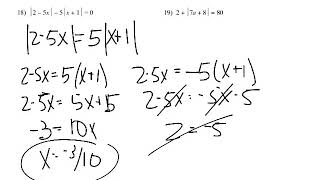 18) |2 − 5x| − 5|x + 1| = 0
19) 2 + |7a + 8| = 80
|2-5x| = 5|x+1|
2-5x = 5(x+1)
2-5x = -5(x+1)
2-5x = 5x+5
2-5x = -5x-5
-3 = 10x
2 = -5
x = -3/10